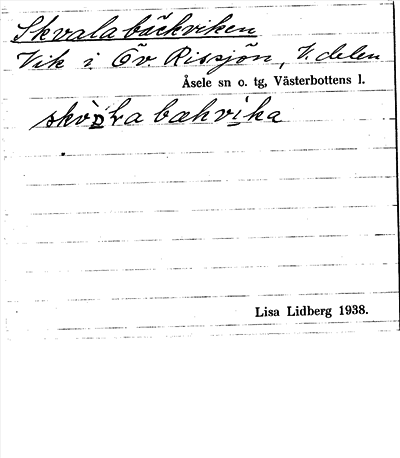 Skvalabäckviken
Vik i Öv. Rissjön, V. delen
Åsele sn o. tg, Västerbottens l.
bækvika
Lisa Lidberg 1938.